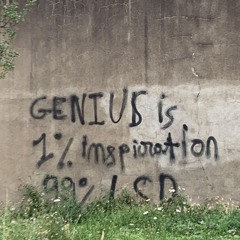 GENIUS is
1% inspiration
99% LSD